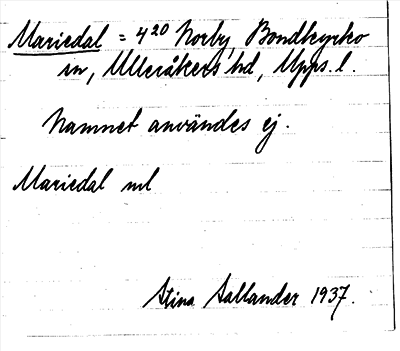 Mariedal = 4²⁰ Norby, Bondkyrko
sn, Ulleråkers hd, Upps. l.
Namnet användes ej.
Mariedal ml
Stina Sallander 1937.